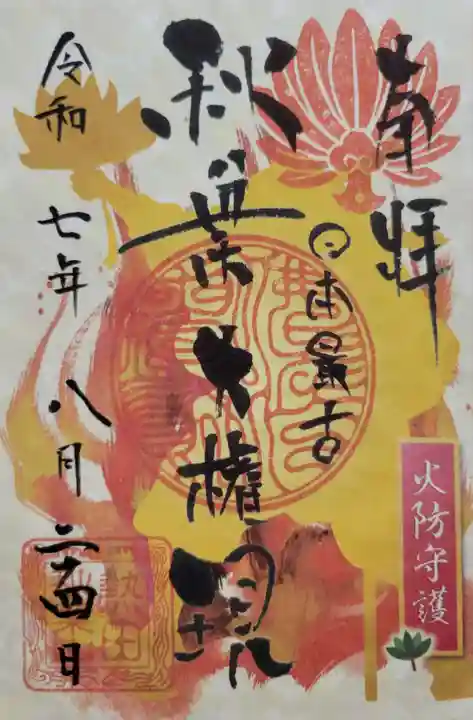 奉拝
日本最古
秋葉大権現
令和七年八月二十四日
火防守護